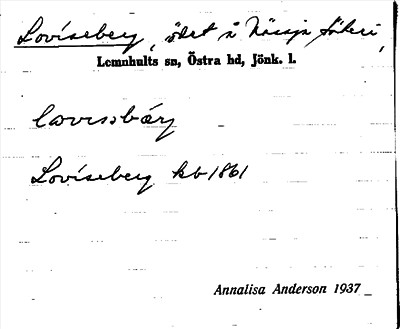 Lovíseberg, ödet å Nässja säteri,
Lemnhults sn, Östra hd, Jönk. l.
Lovíseberg kb 1861
Annalisa Anderson 1937